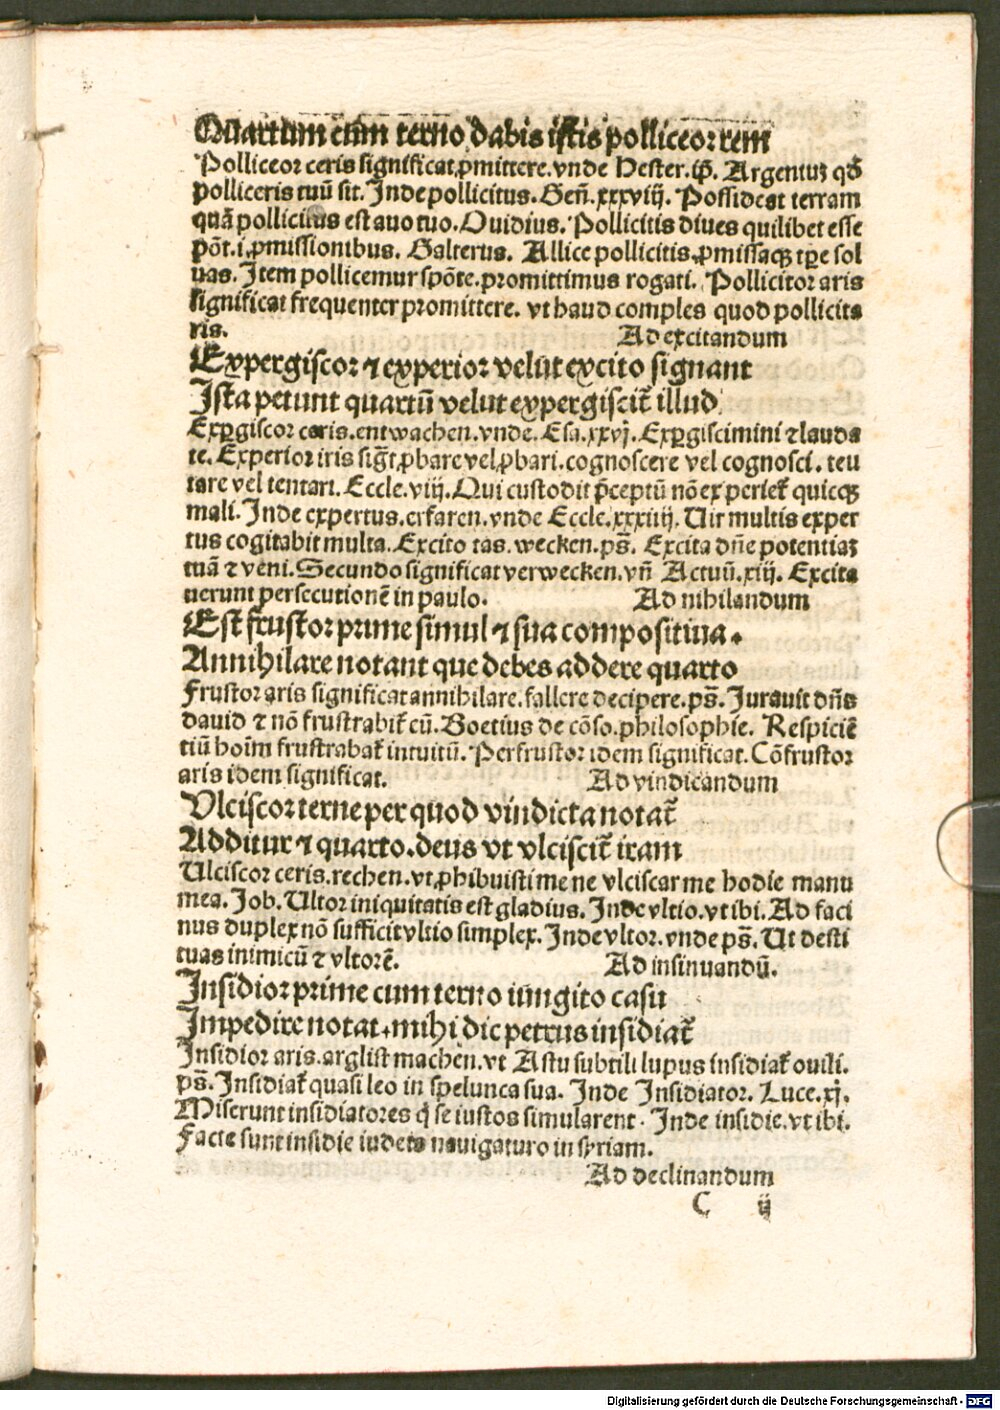 Quartum cum terno dabis istis polliceor rem
Polliceor ceris significat ꝓmittere. vnde Hester. iiꝓ. Argentuꝫ qđ
polliceris tuū sit. Inde pollicitus. Geñ. xxxviij. Possideat terram
quā pollicitus est auo tuo. Ouidius. Pollicitis diues quilibet esse
pōt. i. ꝓmissionibus. Galterus. Allice pollicitis, ꝓmissaqꝫ tꝑe sol
uas. Item pollicemur spōte. promittimus rogati. Pollicitor aris
significat frequenter promittere. vt haud comples quod pollicita
ris. Ad excitandum
Expergiscor ⁊ experior velut excito signant
Ista petunt quartū velut expergiscit̄ illud
Exꝑgiscor ceris. entwachen. vnde. Esa. xxvj. Exꝑgiscimini ⁊ lauda
te. Experior iris sigt̄ ꝓbare vel ꝓbari. cognoscere vel cognosci. ten
tare vel tentari. Eccle. viij. Qui custodit p̄ceptū nō experiet̄ quicqꝫ
mali. Inde expertus. erfaren. vnde Eccle. xxxiiij. Uir multis exper
tus cogitabit multa. Excito tas. wecken. ps̄. Excita dn̄e potentiaꝫ
tuā ⁊ veni. Secundo significat verwecken. vn̄ Actuū. xiij. Excita
uerunt persecutionē in paulo. Ad nihilandum
Est frustor prime simul ⁊ sua compositiua.
Annihilare notant que debes addere quarto
Frustor aris significat annihilare. fallere decipere. ps̄. Jurauit dn̄s
dauid ⁊ nō frustrabit̄ eū. Boetius de cōso. philosophie. Respiciē
tiū hoīm frustrabat̄ intuitū. Perfrustor idem significat. Cōfrustor
aris idem significat. Ad vindicandum
Vlciscor terne per quod vindicta notat̄
Additur ⁊ quarto. deus vt vlciscit̄ iram
Ulciscor ceris. rechen. vt ꝓhibuisti me ne vlciscar me hodie manu
mea. Job. Ultor iniquitatis est gladius. Inde vltio. vt ibi. Ad faci
nus duplex nō sufficit vltio simplex. Inde vltor. vnde ps̄. Ut desti
tuas inimicū ⁊ vltorē. Ad insinuandū.
Insidior prime cum terno iungito casu
Impedire notat. mihi dic petrus insidiat̄
Insidior aris. arglist machen. vt Astu subtili lupus insidiat̄ ouili.
ps̄. Insidiat̄ quasi leo in spelunca sua. Inde Insidiator. Luce. xj.
Miserunt insidiatores q̇ se iustos simularent. Inde insidie. vt ibi.
Facte sunt insidie iudeis nauigaturo in syriam.
Ad declinandum
C ij
Digitalisierung gefördert durch die Deutsche Forschungsgemeinschaft - DFG